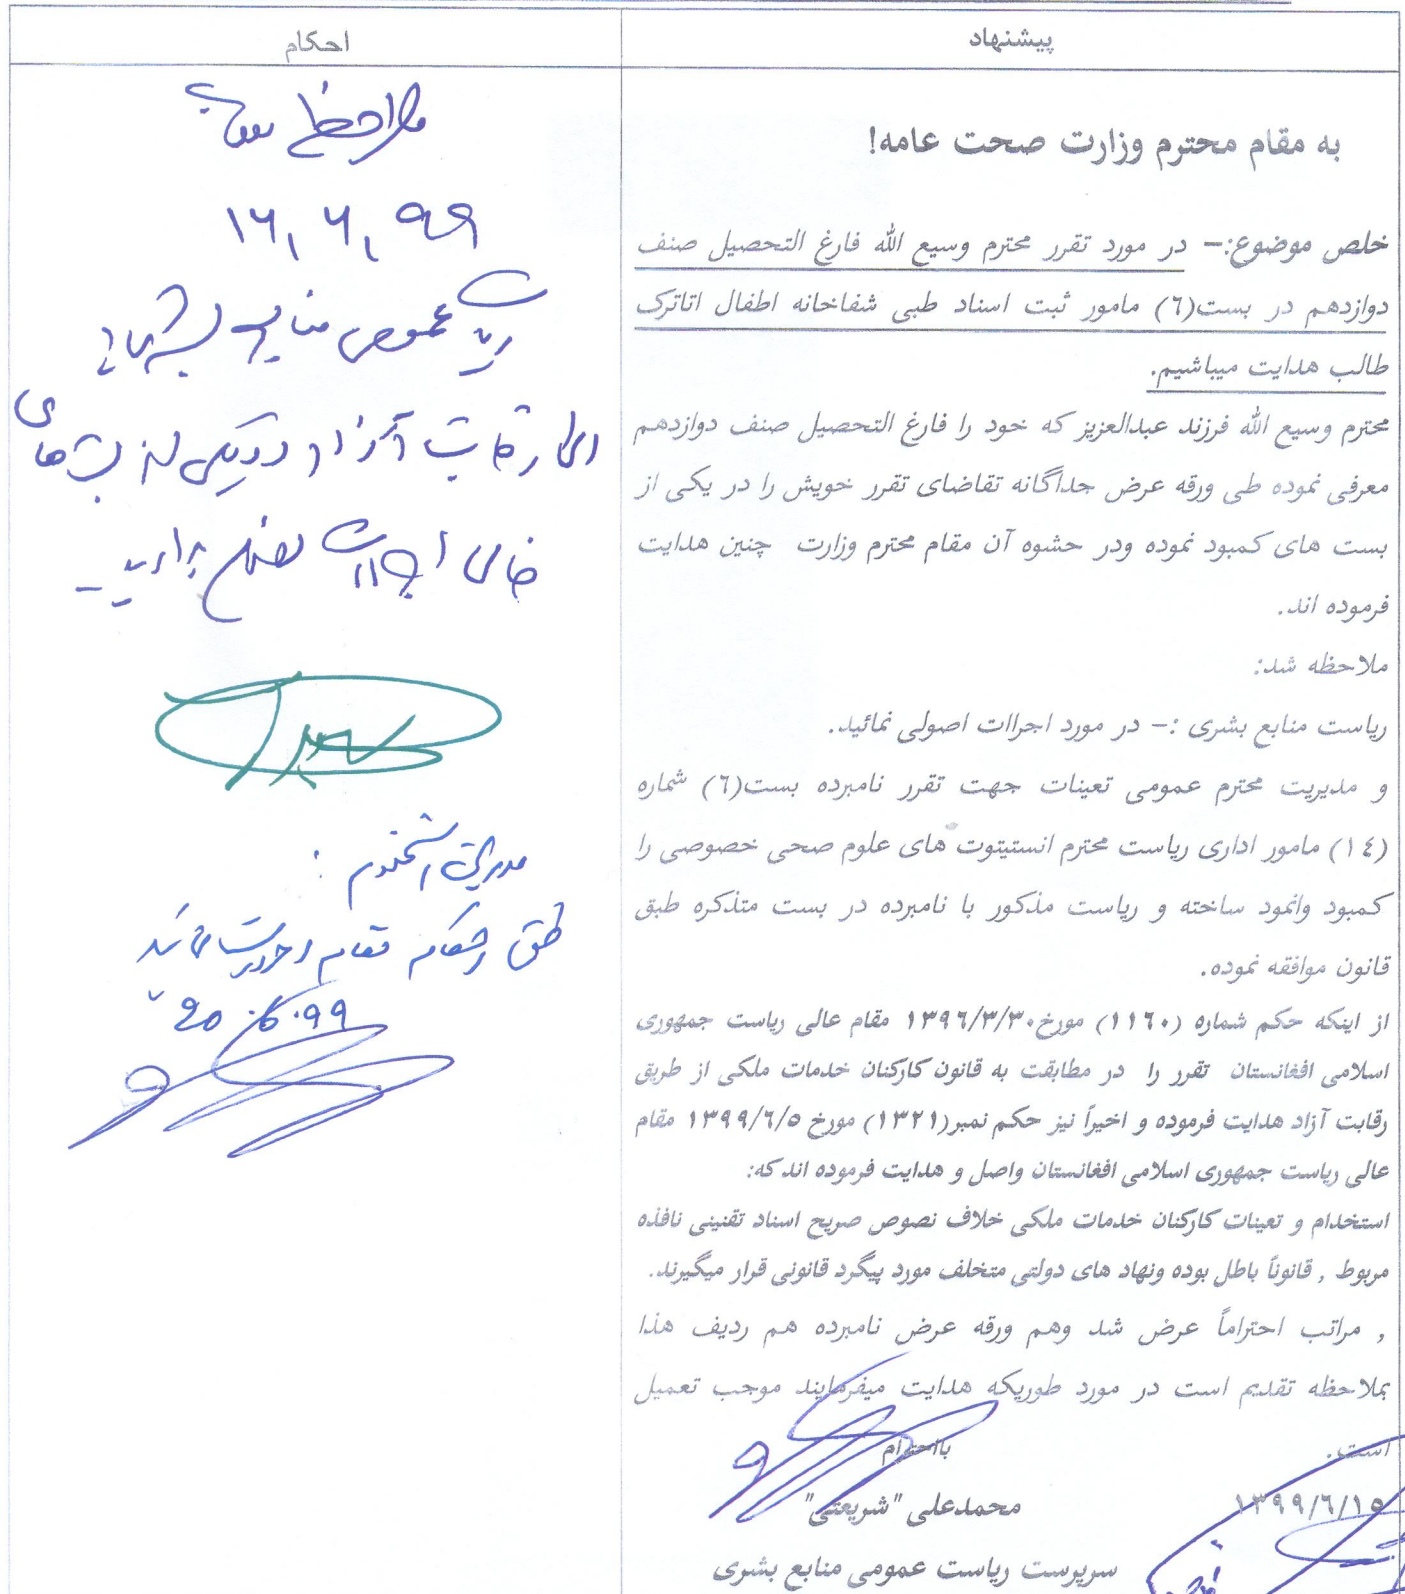 پیشنهاد
به مقام محترم وزارت صحت عامه!
خلص موضوع:– در مورد تقرر محترم وسیع الله فارغ التحصیل صنف
دوازدهم در بست(٦) مامور ثبت اسناد طبی شفاخانه اطفال اتاترک
طالب هدایت میباشیم.
محترم وسیع الله فرزند عبدالعزیز که خود را فارغ التحصیل صنف دوازدهم
معرفی نموده طی ورقه عرض جداگانه تقاضای تقرر خویش را در یکی از
بست های کمبود نموده ودر حشوه آن مقام محترم وزارت چنین هدایت
فرموده اند.
ملاحظه شد:
ریاست منابع بشری :– در مورد اجراات اصولی نمائید.
و مدیریت محترم عمومی تعینات جهت تقرر نامبرده بست(٦) شماره
(١٤) مامور اداری ریاست محترم انستیتوت های علوم صحی خصوصی را
کمبود وانمود ساخته و ریاست مذکور با نامبرده در بست متذکره طبق
قانون موافقه نموده.
از اینکه حکم شماره (١١٦٠) مورخ١٣٩٦/٣/٣٠ مقام عالی ریاست جمهوری
اسلامی افغانستان تقرر را در مطابقت به قانون کارکنان خدمات ملکی از طریق
رقابت آزاد هدایت فرموده و اخیراً نیز حکم نمبر(١٣٢١) مورخ ١٣٩٩/٦/٥ مقام
عالی ریاست جمهوری اسلامی افغانستان واصل و هدایت فرموده اند که:
استخدام و تعینات کارکنان خدمات ملکی خلاف نصوص صریح اسناد تقنینی نافذه
مربوط , قانوناً باطل بوده ونهاد های دولتی متخلف مورد پیگرد قانونی قرار میگیرند.
, مراتب احتراماً عرض شد وهم ورقه عرض نامبرده هم ردیف هذا
بملاحظه تقدیم است در مورد طوریکه هدایت میفرمایند موجب تعمیل
است.
بااحترام
محمدعلی "شریعتی"
١٣٩٩/٦/١٥
سرپرست ریاست عمومی منابع بشری
احکام
ملاحظه شد
۱۶/۶/۹۹
ریاست عمومی منابع بشری
از رقابت آزاد در یکی از بست های
خالی
طبق احکام مقام اجراات نمائید
20.6.99